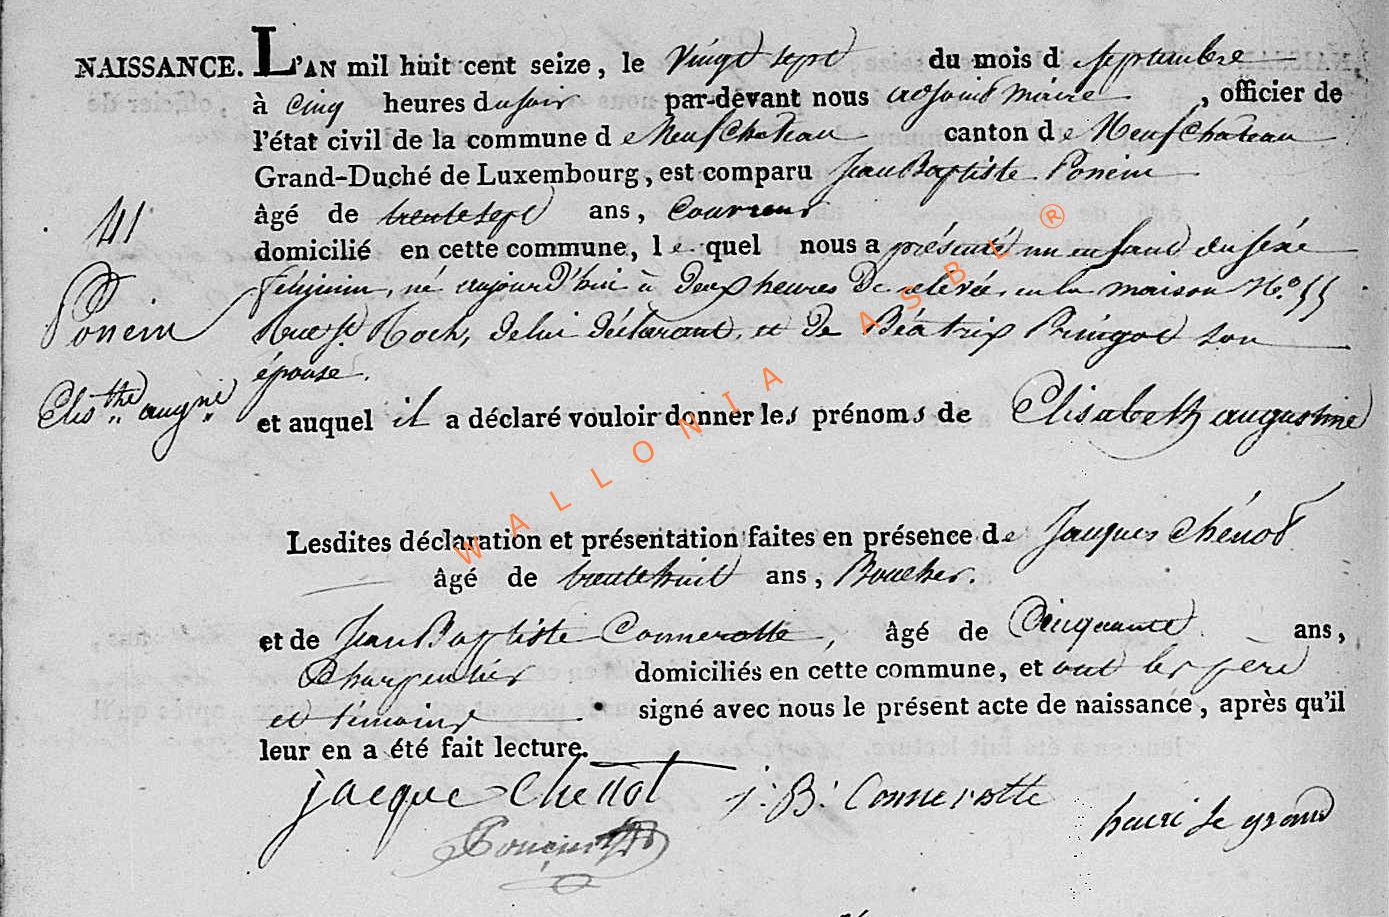 NAISSANCE. L'AN mil huit cent seize, le vingt sept du mois de septembre
à cinq heures du soir par-devant nous adjoint maire, officier de
l'état civil de la commune de Neufchateau canton de Neufchateau
Grand-Duché de Luxembourg, est comparu Jean Baptiste Poncin
âgé de trente sept ans, Couvreur
41
domicilié en cette commune, le quel nous a présenté un enfant du sexe
féminin, né aujourd'hui à deux heures de relevée, en la maison N.o 55
Poncin
Rue St. Roch, de lui déclarant, et de Béatrix Pringot son
épouse.
Elis.the aug.ne
et auquel il a déclaré vouloir donner les prénoms de Elisabeth augustine
Lesdites déclaration et présentation faites en présence de Jacques Chénot
âgé de trente huit ans, Boucher.
et de Jean Baptiste Connerotte, âgé de Cinquante ans,
Charpentier domiciliés en cette commune, et ont les pere
et témoins signé avec nous le présent acte de naissance, après qu'il
leur en a été fait lecture.
jacque Chenot J: B: Connerotte
henri le grand
Poncin
WALLONIA ASBL ®